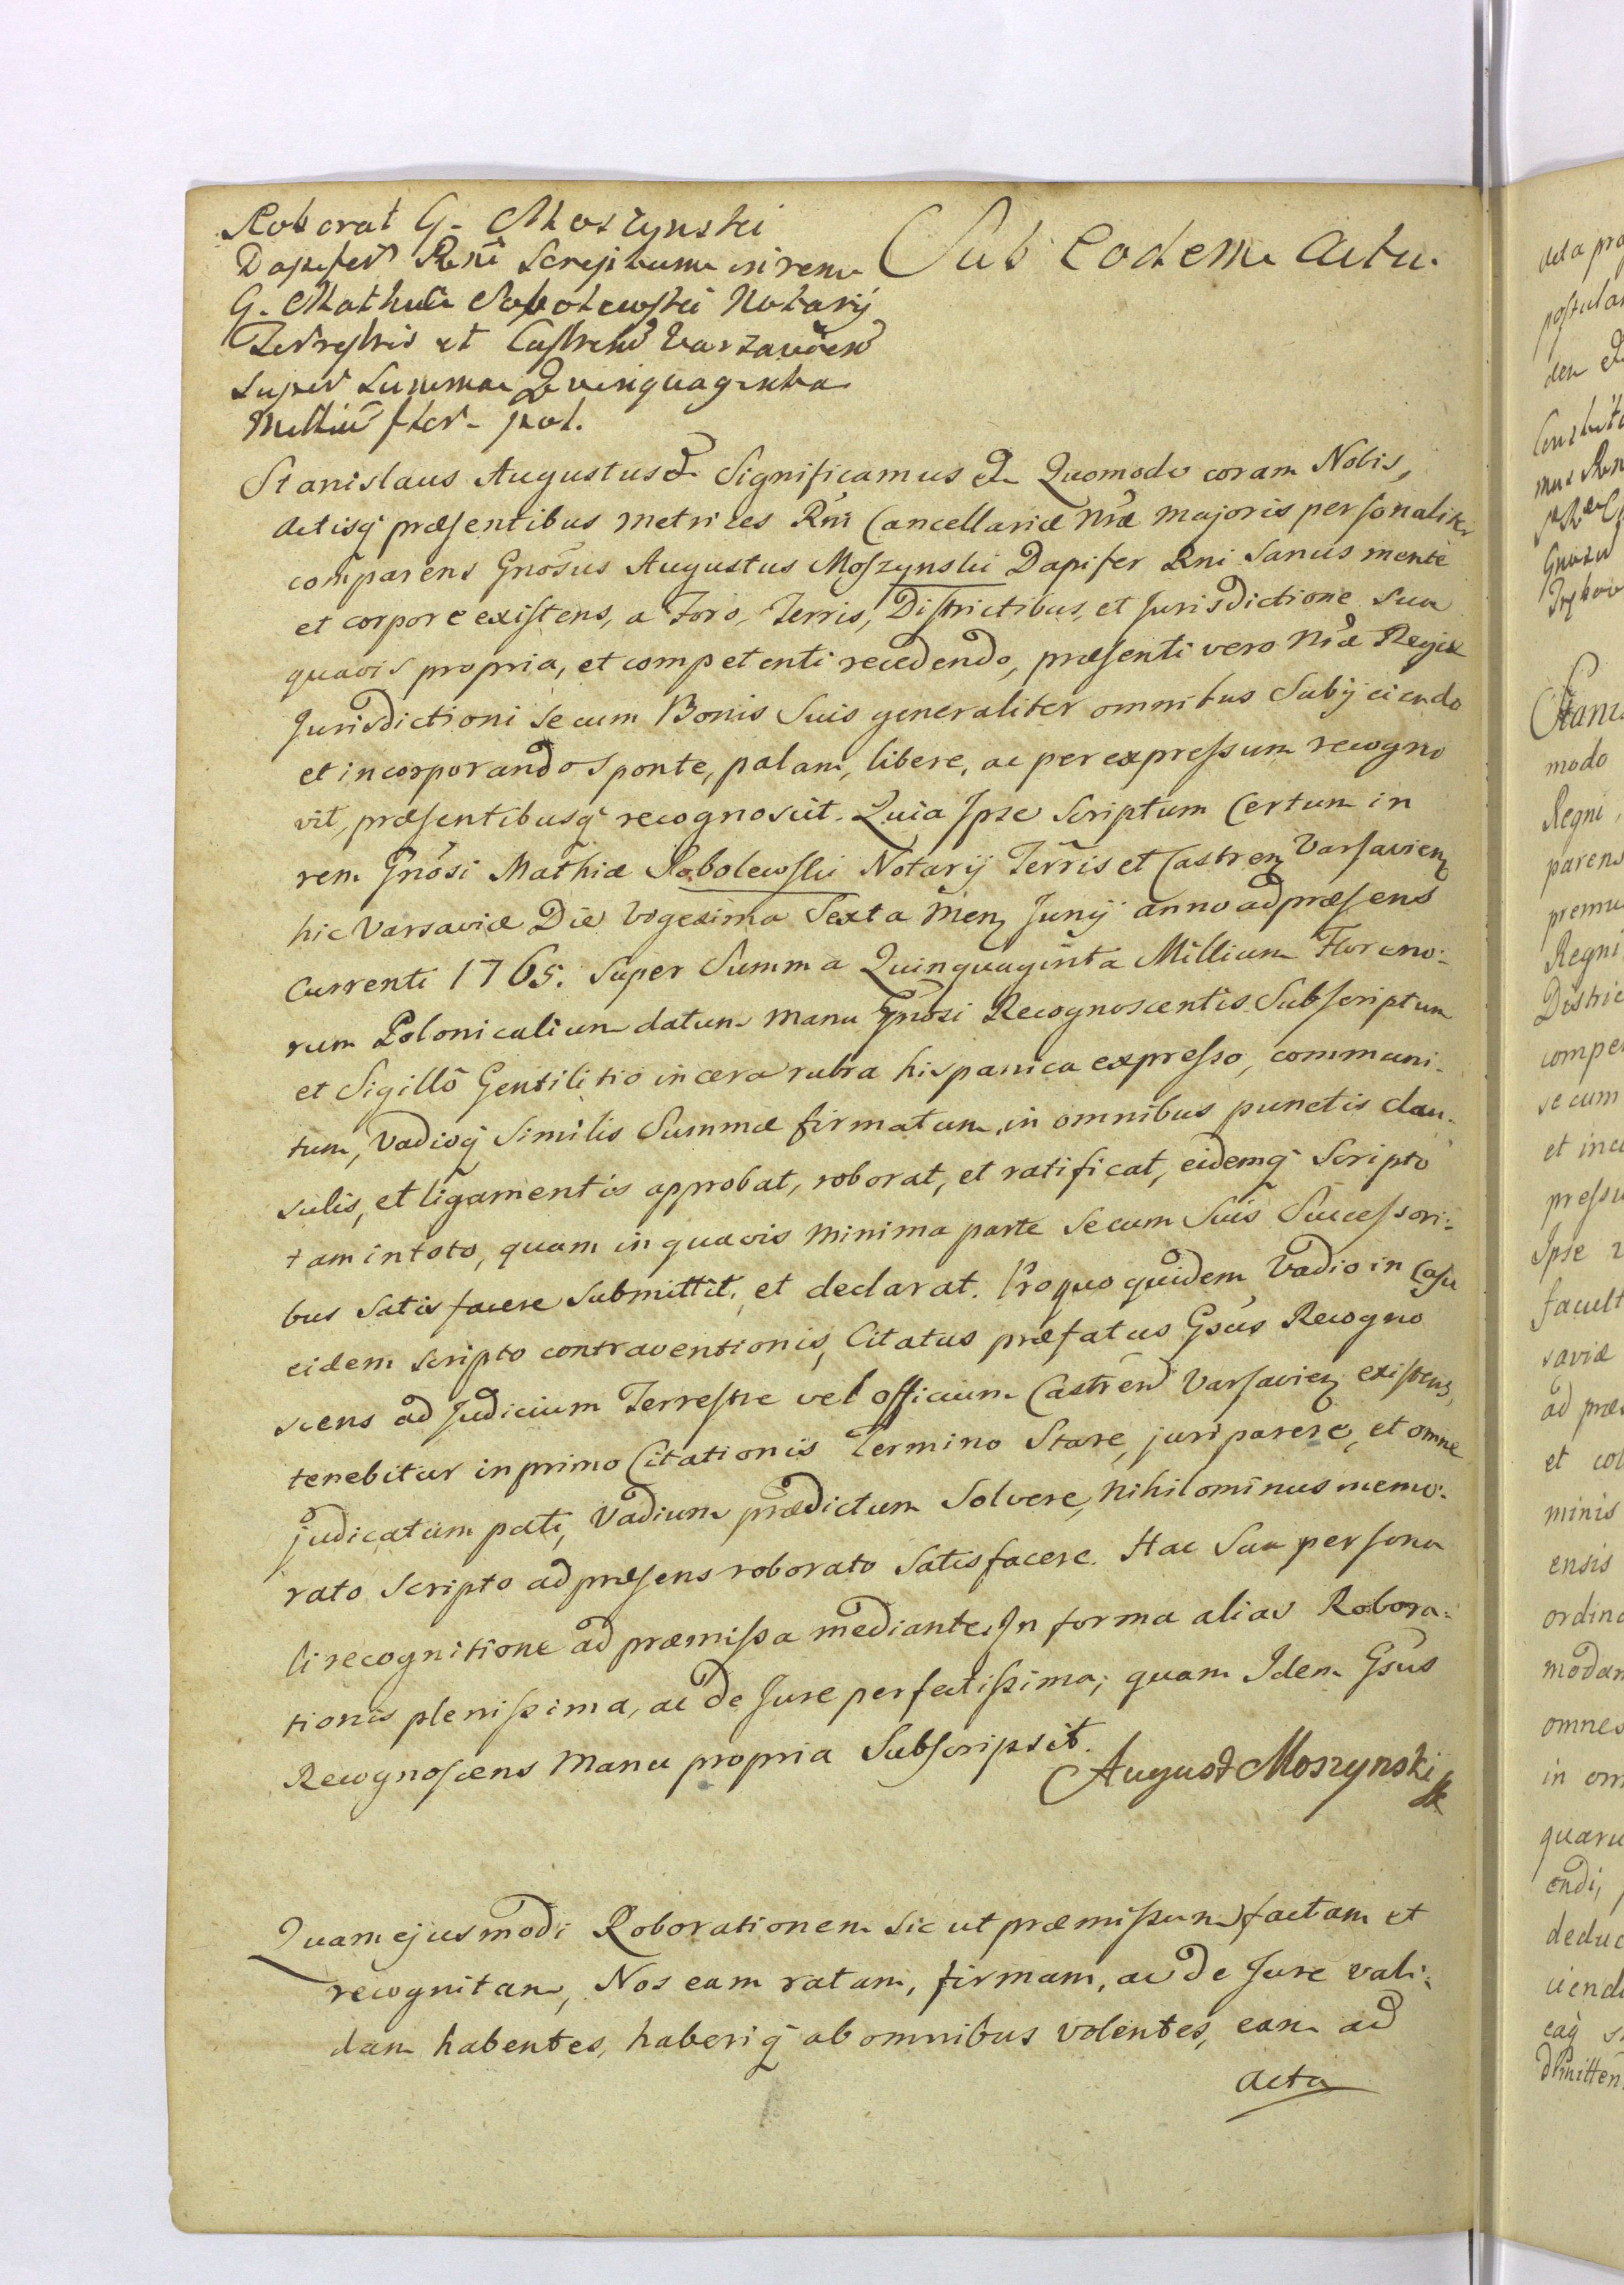 Roborat G. Moszynski
Dapifer Rni Scriptum in rem
G. Mathiæ Sobolewski Notarij
Terrestris et Castren Varsavien
super Summa Quinquaginta
Millium flor. pol.
Sub Eodem Actu.
Stanislaus Augustus & Significamus & Quomodo coram Nobis,
Actisq præsentibus Metrices Rni Cancellariæ Nræ Majoris personaliter
comparens Gnosus Augustus Moszynski Dapifer Rni Sanus mente
et corpore existens, a Foro, Terris, Districtibus, et Jurisdictione sua
quavis propria, et competenti recedendo, præsenti vero Nræ Regiæ
Jurisdictioni se cum Bonis Suis generaliter omnibus Subijciendo
et incorporando sponte, palam, libere, ac per expressum recogno
vit, præsentibusq recognoscit. Quia Ipse Scriptum Certum in
rem Gnosi Mathiæ Sobolewski Notarij Terris et Castren Varsavien
hic Varsaviæ Die Vigesima Sexta Men Junij anno ad præsens
Currenti 1765. Super Summa Quinquaginta Millium Floreno-
rum Polonicalium datum manu Gnosi Recognoscentis Subscriptum
et Sigillo Gentilitio in cera rubra hispanica expresso, communi-
tum, Vadioq Similis Summæ firmatum, in omnibus punctis clau-
sulis, et ligamentis approbat, roborat, et ratificat, eidemq Scripto
tam in toto, quam in quavis minima parte se cum Suis Successori-
bus satisfacere submittit, et declarat. Pro quo quidem Vadio in Casu
eidem scripto contraventionis, Citatus præfatus Gsus Recogno
scens ad Judicium Terrestre vel officium Castren Varsavien existens,
tenebitur in primo Citationis Termino Stare, juri parere, et omne
judicatum pati, Vadium prædictum Solvere, nihilominus memo-
rato Scripto ad præsens roborato Satisfacere. Hac Sua persona
li recognitione ad præmissa mediante. In forma alias Robora-
tionis plenissima, ac de Jure perfectissima; quam Idem Gsus
Recognoscens Manu propria Subscripsit.
August Moszynski
Quam ejusmodi Roborationem sic ut præmissum factam et
recognitam, Nos eam ratam, firmam, ac de Jure vali-
dam habentes, haberiq ab omnibus volentes, eam ad
Acta